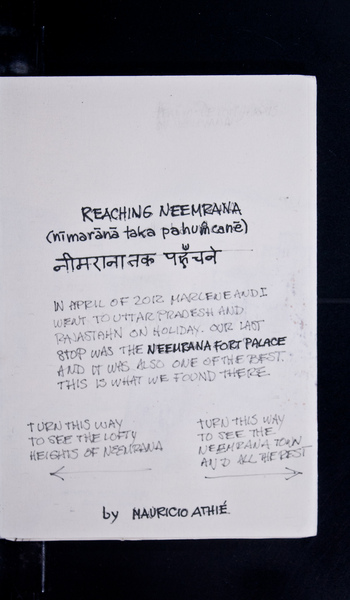 REACHING NEEMRANA
(nīmarānā taka pahum̐canē)
नीमराना तक पहुँचने
IN APRIL OF 2012 MARLENE AND I
WENT TO UTTAR PRADESH AND
RAJASTAHN ON HOLIDAY. OUR LAST
STOP WAS THE NEEMRANA FORT PALACE
AND IT WAS ALSO ONE OF THE BEST.
THIS IS WHAT WE FOUND THERE.
TURN THIS WAY
TO SEE THE LOFTY
HEIGHTS OF NEEMRANA
TURN THIS WAY
TO SEE THE
NEEMRANA TOWN
AND ALL THE REST
by MAURICIO ATHIÉ.